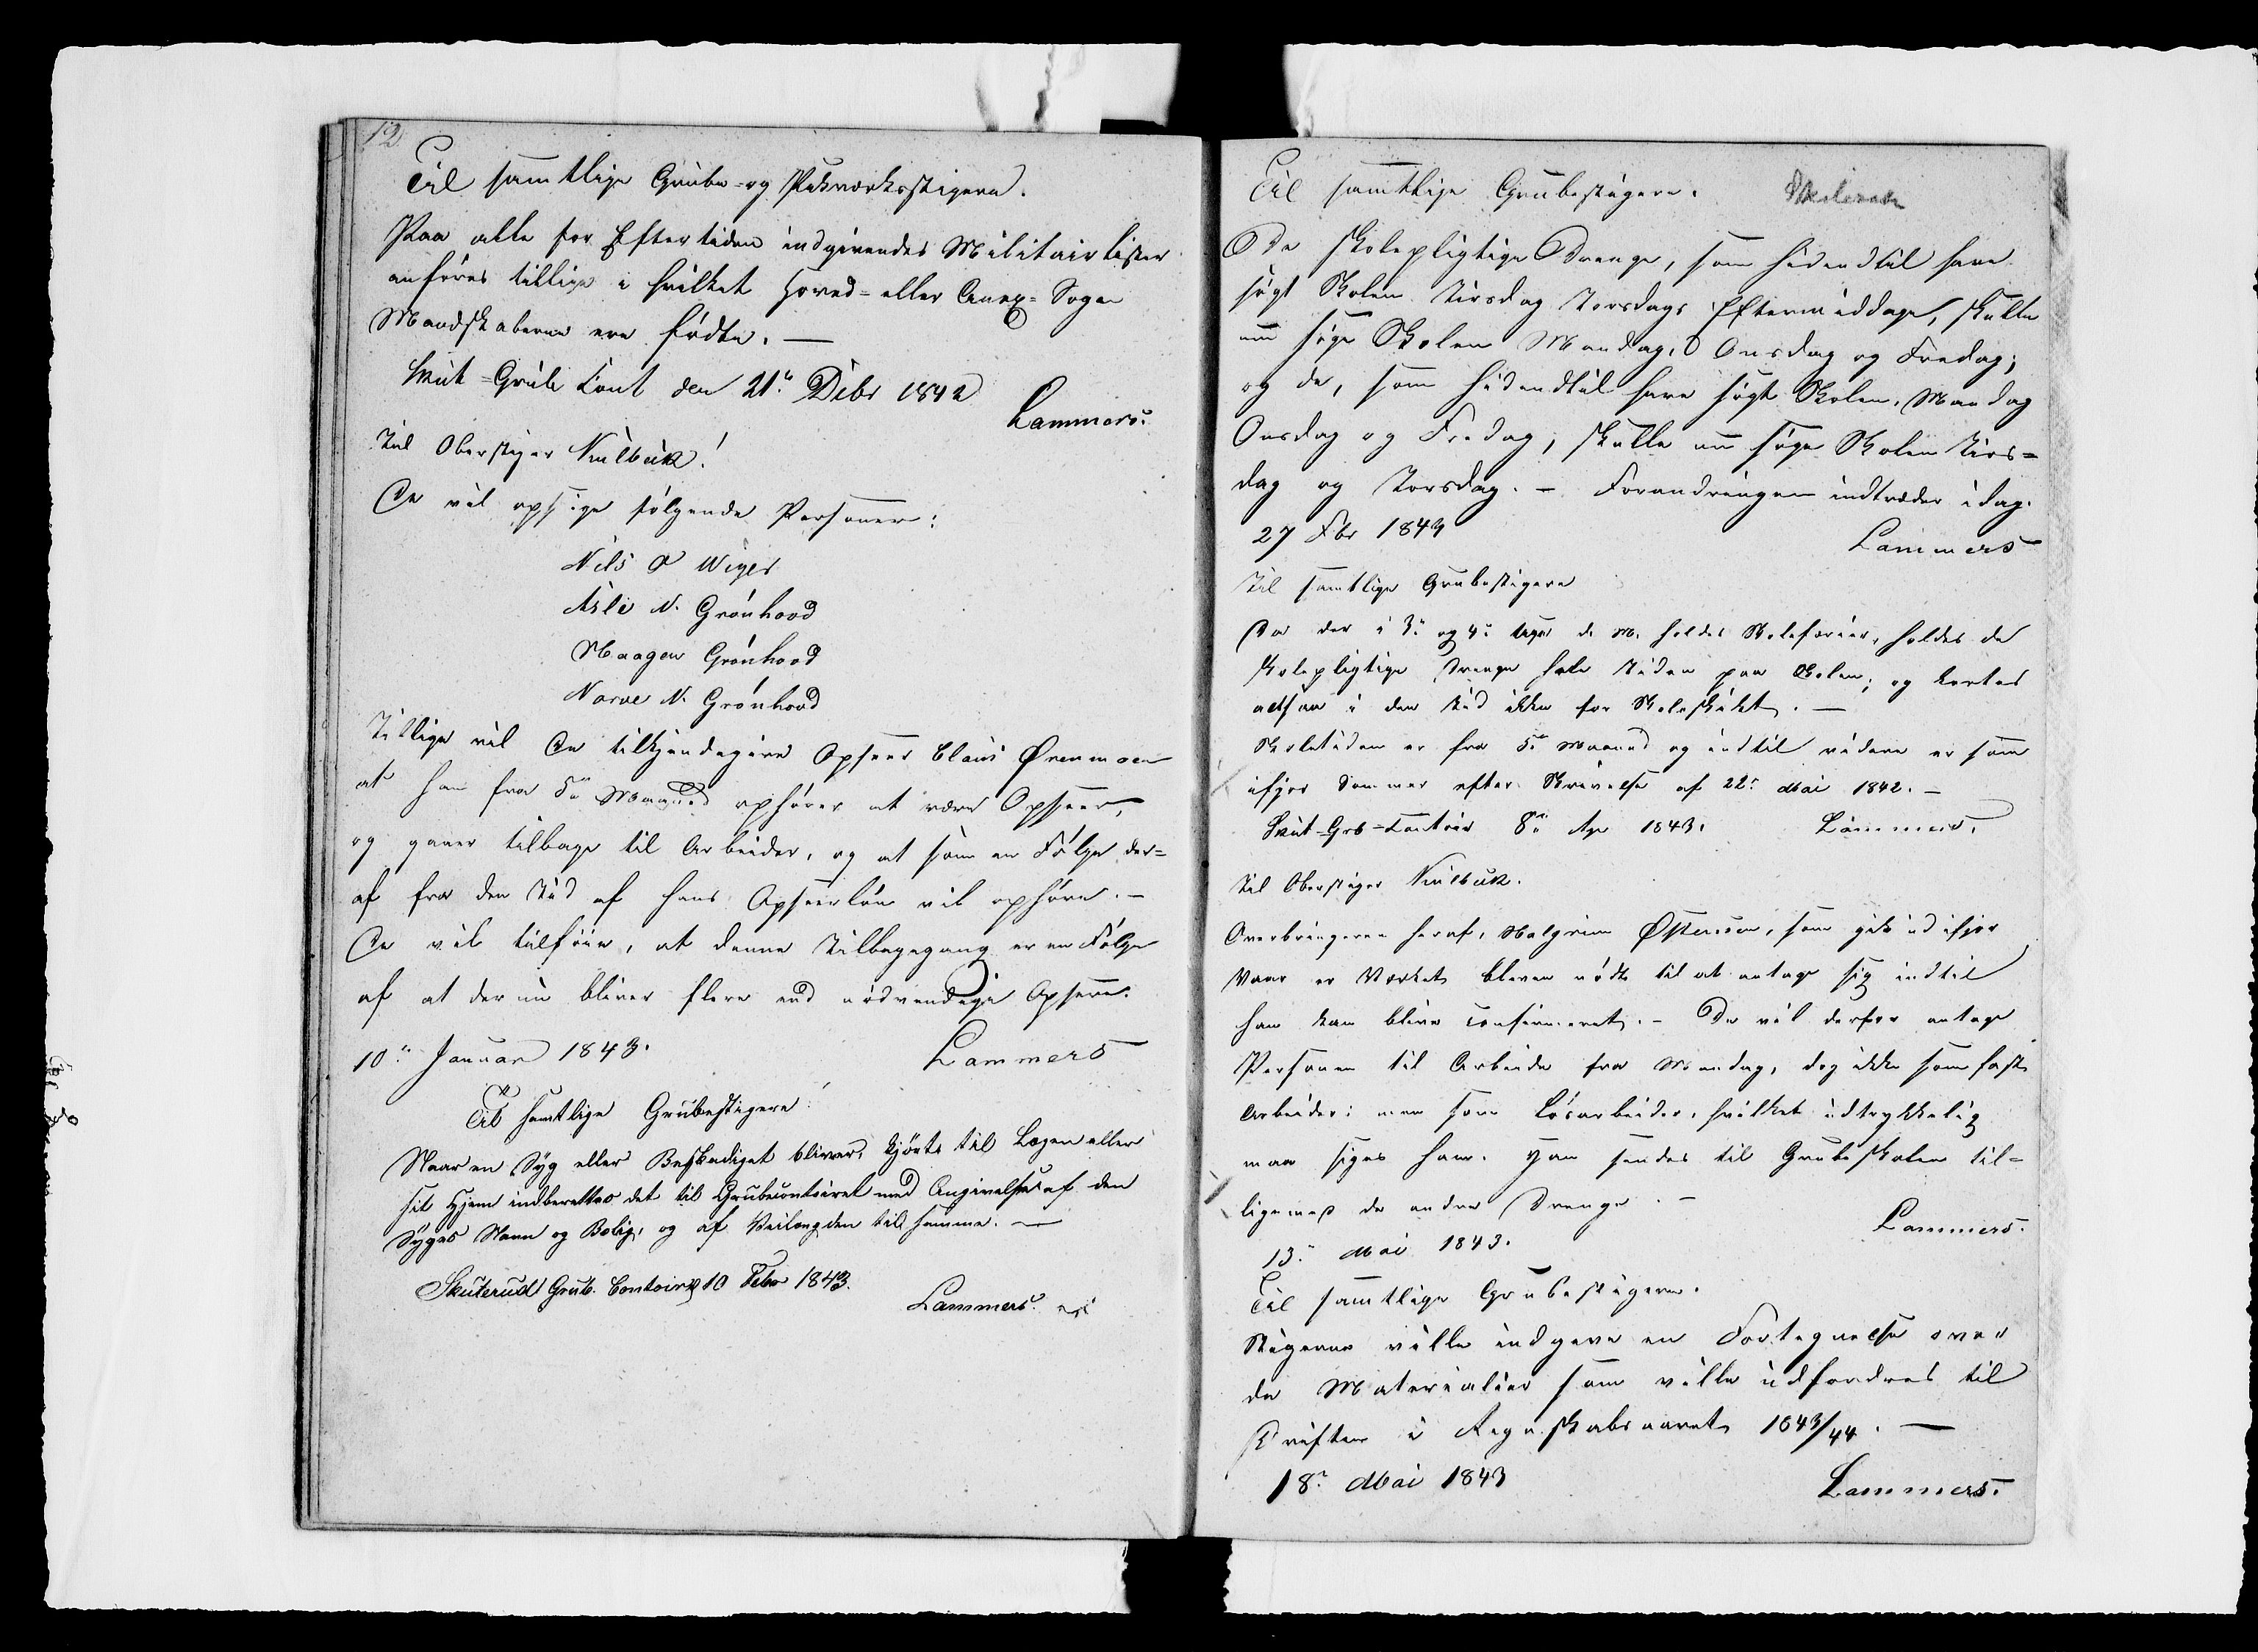 12
Til samtlige Grube- og Pukværksstigere.
Paa alle for Eftertiden indgivendes Militairlister
anføres tillige i hvilket Hoved- eller Anex-Sogn
Mandskaberne ere fødte. —
Skut-Grub Cont den 21de Decbr 1842
Lammers.
Til Oberstiger Kulbuk!
De vil opsige følgende Personer:
Nils P Wiger
Asle N. Grønhovd
Haagen Grønhovd
Narve N. Grønhovd
Tillige vil De tilkjendegive Opseer Claus Ørenmoen
at han fra 5te Maaned ophører at være Opseer,
og gaaer tilbage til Arbeider, og at som en Følge der=
af fra den Tid af hans Opseerløn vil ophøre. —
De vil tilføie, at denne Tilbagegang er en Følge
af at der nu bliver flere end nødvendige Opseere.
10de Januar 1843.
Lammers
Til samtlige Grubestigere!
Naar en Syg eller Beskadiget bliver kjørt til Lægen eller
sit Hjem indberettes det til Grubecontoiret med Angivelse af den
Syges Navn og Bolig, og af Veilængden til samme. —
Skuterud Grub. Contoir 10 Febr 1843.
Lammers.
Til samtlige Grubestigere.
De skolepligtige Drenge, som hidendtil have
søgt Skolen Tirsdag Torsdags Eftermiddage, skulle
nu søge Skolen Mandag, Onsdag og Fredag;
og de, som hidendtil have søgt Skolen, Mandag
Onsdag og Fredag, skulle nu søge Skolen Tirs=
dag og Torsdag. — Forandringen indtræder idag.
27 Fbr 1843
Lammers
Til samtlige Grubestigere
Da der i 3de og 4de Uge d. M. holdes Skoleferier, holdes de
skolepligtige Drenge hele Tiden paa Skolen; og kortes
altsaa i den Tid ikke for Skoleskikt. —
Skoletiden er fra 5te Maaned og indtil videre er som
ifjor Sommer efter Skrivelse af 22de Mai 1842. —
Skut-Grb-Contoir 8de Apr 1843.
Lammers.
Til Oberstiger Kulbuk.
Overbringeren heraf, Halgrim Østensen, som gik ud ifjor
Vaar er Værket bleven nødt til at antage sig indtil
han kan blive confirmeret. — De vil derfor antage
Personen til Arbeide fra Mandag, dog ikke som fast
Arbeider; men som Løsarbeider, hvilket udtrykkelig
maa siges ham. Han sendes til Grubeskolen til=
ligemed de andre Drenge. —
13de Mai 1843.
Lammers.
Til samtlige Grubestigere.
Stigerne ville indgive en Fortegnelse over
de Materialier som ville udfordres til
Driften i Regnskabsaaret 1843/44. —
18de Mai 1843
Lammers.